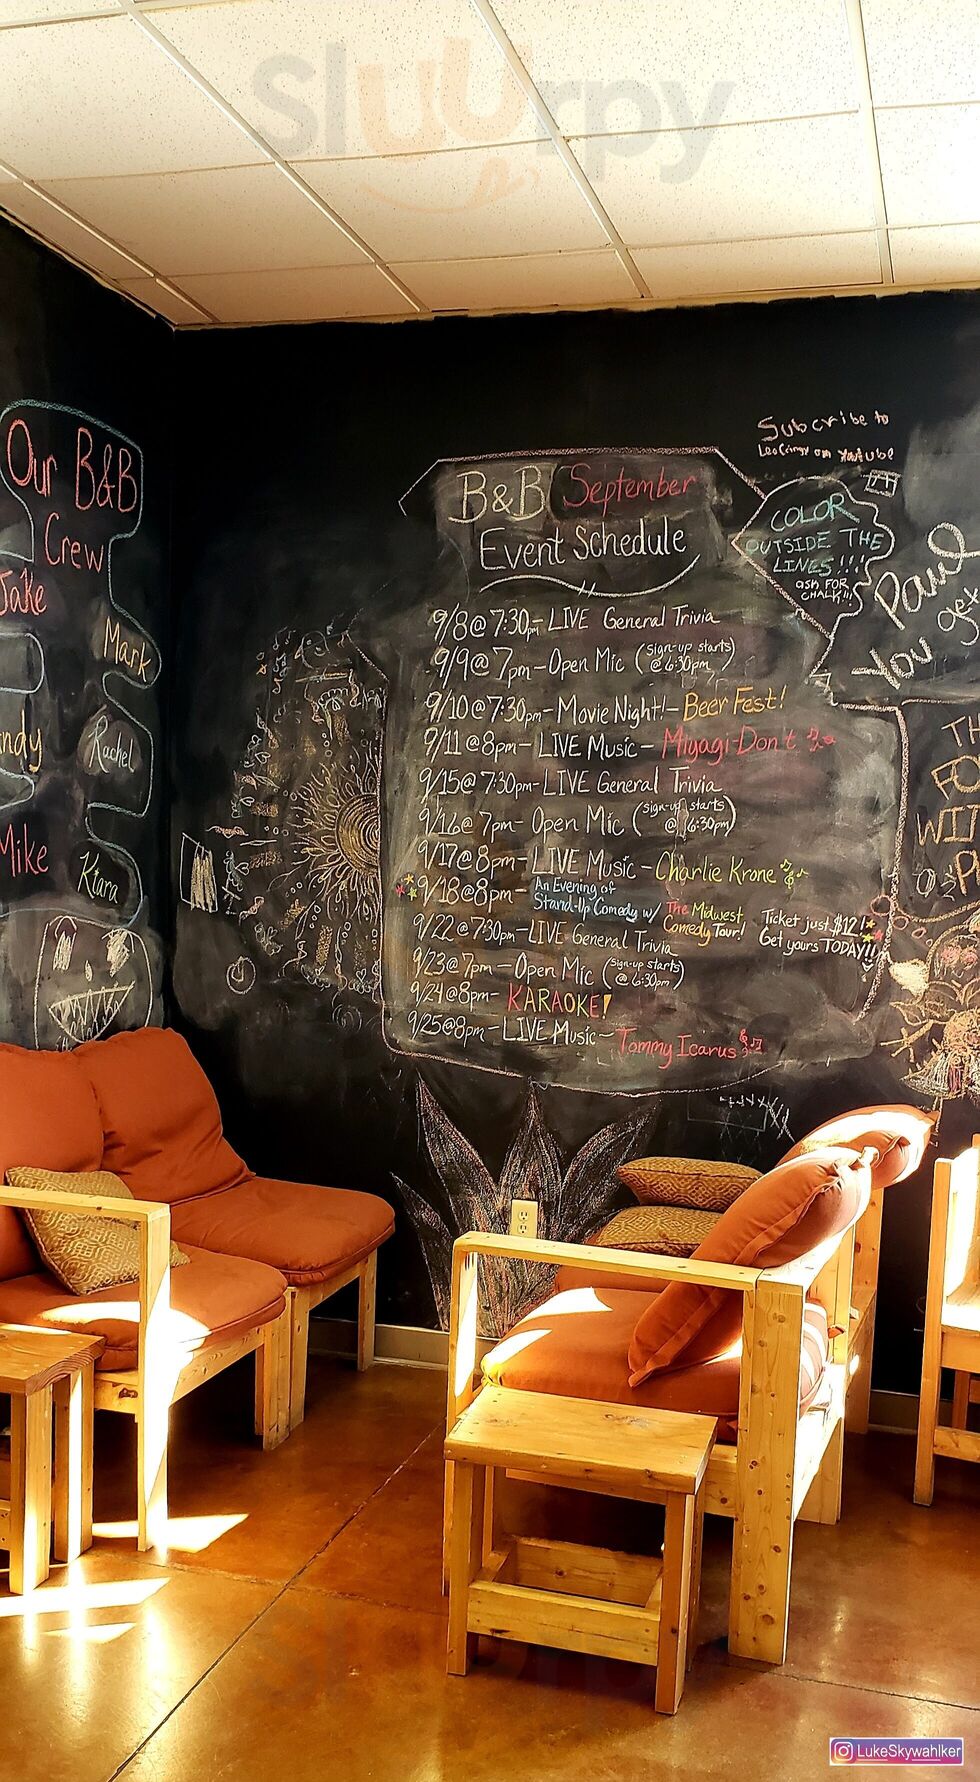 Sluurpy
Our B&B
Crew
Jake
Mark
Rachel
Mike
Kiara
B&B September
Event Schedule
9/8@7:30pm-LIVE General Trivia
9/9@7pm-Open Mic (sign-up starts @ 6:30pm)
9/10@7:30pm-Movie Night!-Beer Fest!
9/11@8pm-LIVE Music-Miyagi-Don't
9/15@7:30pm-LIVE General Trivia
9/16@7pm-Open Mic (sign-up starts @ 6:30pm)
9/17@8pm-LIVE Music-Charlie Krone
9/18@8pm-An Evening of Stand-Up Comedy w/ The Midwest Comedy Tour! Ticket just $12! Get yours TODAY!!
9/22@7:30pm-LIVE General Trivia
9/23@7pm-Open Mic (sign-up starts @ 6:30pm)
9/24@8pm-KARAOKE!
9/25@8pm-LIVE Music-Tommy Icarus
Subcribe to
on Youtube
COLOR
OUTSIDE THE
LINES!!!
ask FOR
CHALK!!!
Paul
You get
LukeSkywahlker